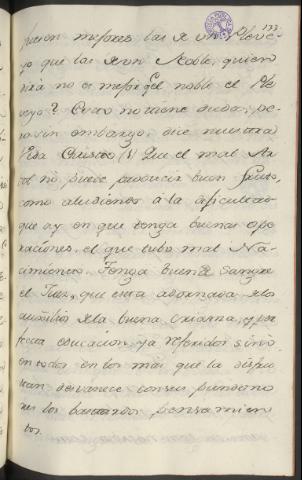 133
fuesen mejores las de un Pleve
yo que las de un Noble, quien
dirá no es mejor qᵉ el noble el Ple
veyo? Esto no tiene duda; pe
ro sin embargo, dice nuestra
Vida Christo (s) Que el mal Ar
bol no puede producir buen fruto,
como aludiendo à la dificultad
que ay en que tenga buenas ope
raciones, el que tubo mal Na
cimiento. Tenga buena sangre
el Juez, que esta adornada de los
auxilios de la buena crianza, y per
fecta educacion, ya referidos sino
en todos en los mas que la disfru
tan desvanece con sus pundono
res los bastardos pensamien
tos.